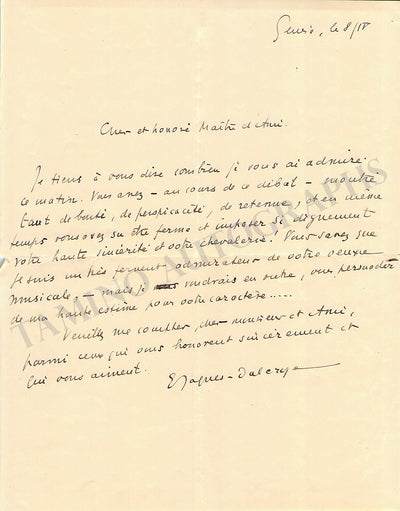 Genève, le 8/IV
Cher et honoré Maître et Ami.
Je tiens à vous dire combien je vous ai admiré
ce matin. Vous avez – au cours de ce débat – montré
tant de bonté, de perspicacité, de retenue, et en même
temps vous avez su être ferme et imposer si dignement
votre haute sincérité et votre chevalerie! Vous savez que
je suis un très fervent admirateur de votre oeuvre
musicale, – mais je voudrais en outre, vous persuader
de ma haute estime pour votre caractère.....
Veuillez me compter, cher monsieur et Ami,
parmi ceux qui vous honorent sincèrement et
qui vous aiment.
E Jaques-Dalcroze
TAMINO AUTOGRAPHS